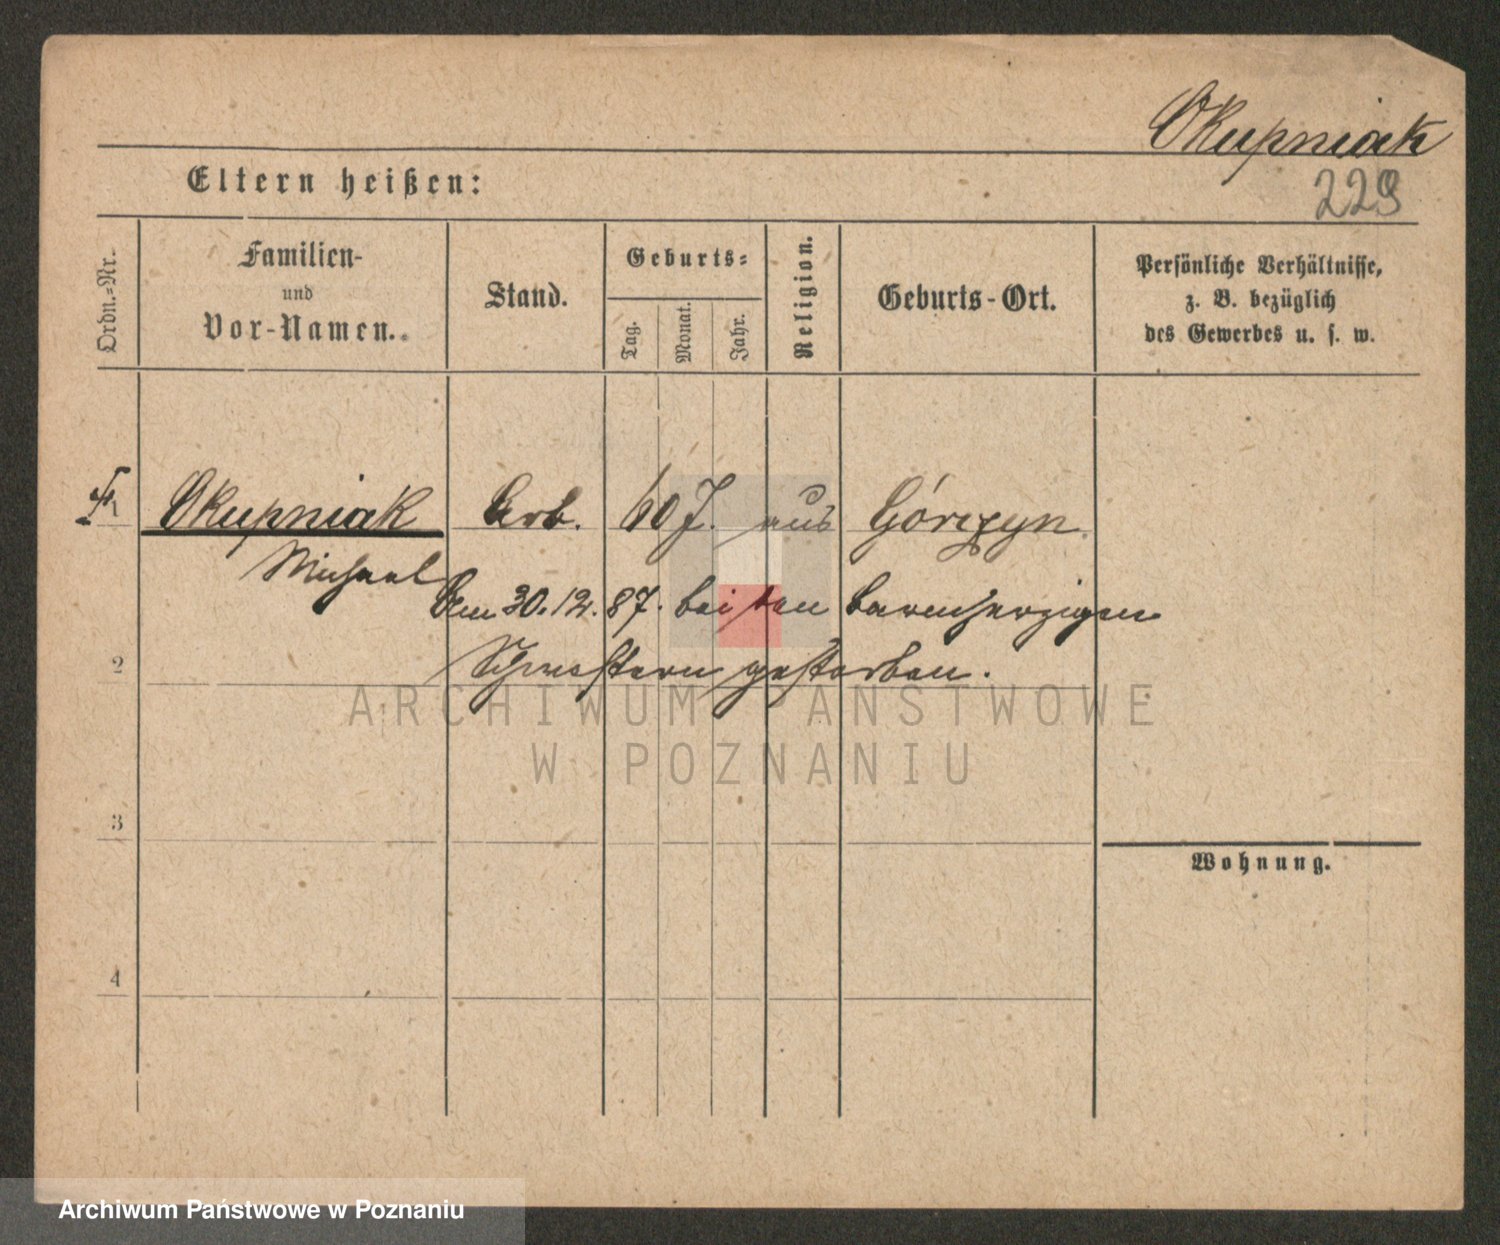 Okupniak
229
Eltern heißen:
Ordn.-Nr.
Familien-
und
Vor-Namen.
Stand.
Geburts-
Tag.
Monat.
Jahr.
Religion.
Geburts-Ort.
Persönliche Verhältnisse,
z. B. bezüglich
des Gewerbes u. s. w.
1 Okupniak Arb. 60 J. aus Górczyn
Michael
Am 30.12.87. bei den barmherzigen
2 Schwestern gestorben.
ARCHIWUM PAŃSTWOWE
W POZNANIU
3
Wohnung.
4
Archiwum Państwowe w Poznaniu